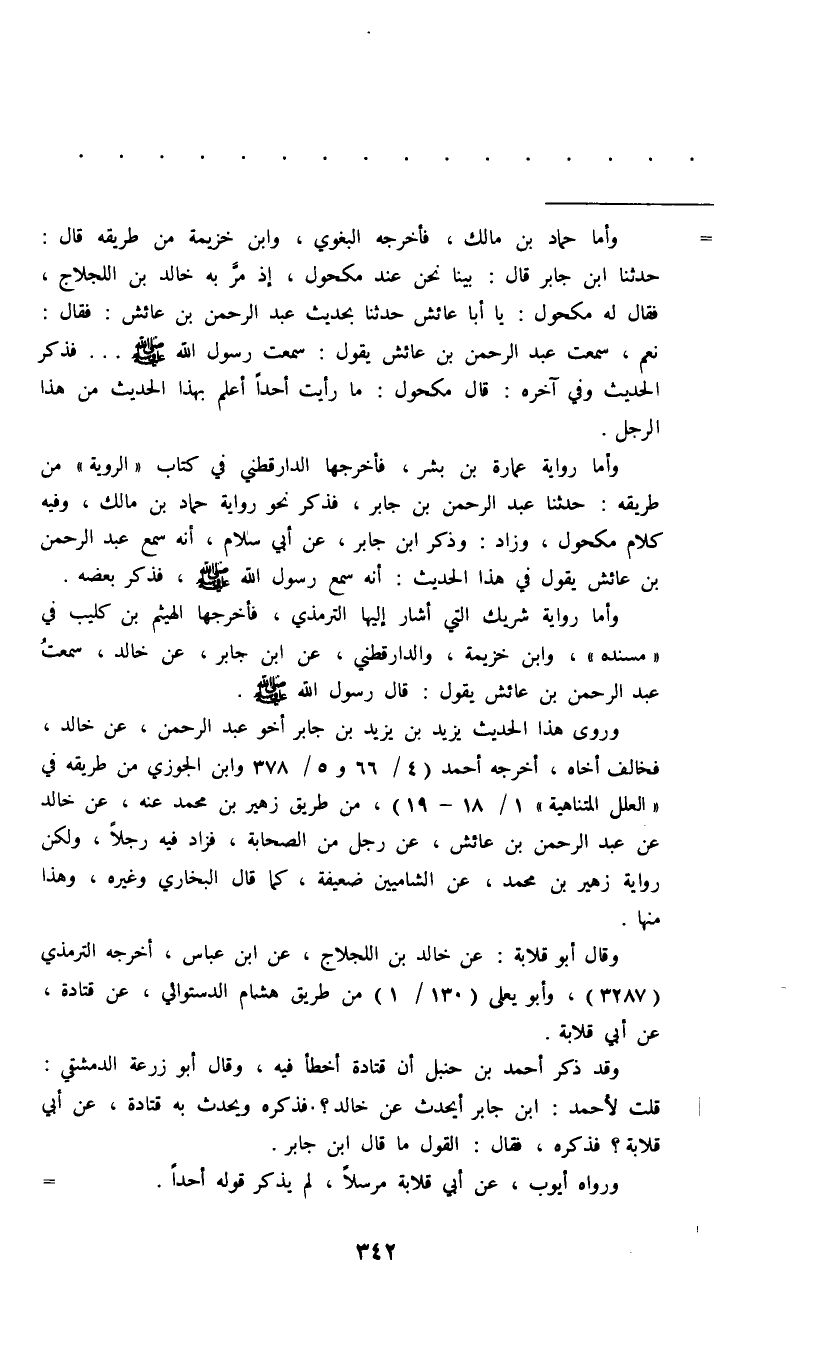 . . . . . . . . . . . . . . . .
= وأما حماد بن مالك ، فأخرجه البغوي ، وابن خزيمة من طريقه قال :
حدثنا ابن جابر قال : بينا نحن عند مكحول ، إذ مرَّ به خالد بن اللجلاج ،
فقال له مكحول : يا أبا عائش حدثنا بحديث عبد الرحمن بن عائش : فقال :
نعم ، سمعت عبد الرحمن بن عائش يقول : سمعت رسول الله ﷺ ... فذكر
الحديث وفي آخره : قال مكحول : ما رأيت أحداً أعلم بهذا الحديث من هذا
الرجل .
وأما رواية عمارة بن بشر ، فأخرجها الدارقطني في كتاب « الروية » من
طريقه : حدثنا عبد الرحمن بن جابر ، فذكر نحو رواية حماد بن مالك ، وفيه
كلام مكحول ، وزاد : وذكر ابن جابر ، عن أبي سلام ، أنه سمع عبد الرحمن
بن عائش يقول في هذا الحديث : أنه سمع رسول الله ﷺ ، فذكر بعضه .
وأما رواية شريك التي أشار إليها الترمذي ، فأخرجها الهيثم بن كليب في
« مسنده » ، وابن خزيمة ، والدارقطني ، عن ابن جابر ، عن خالد ، سمعتُ
عبد الرحمن بن عائش يقول : قال رسول الله ﷺ .
وروى هذا الحديث يزيد بن يزيد بن جابر أخو عبد الرحمن ، عن خالد ،
فخالف أخاه ، أخرجه أحمد ( ٤ / ٦٦ و ٥ / ٣٧٨ وابن الجوزي من طريقه في
« العلل المتناهية » ١ / ١٨ – ١٩ ) ، من طريق زهير بن محمد عنه ، عن خالد
عن عبد الرحمن بن عائش ، عن رجل من الصحابة ، فزاد فيه رجلاً ، ولكن
رواية زهير بن محمد ، عن الشاميين ضعيفة ، كما قال البخاري وغيره ، وهذا
منها .
وقال أبو قلابة : عن خالد بن اللجلاج ، عن ابن عباس ، أخرجه الترمذي
( ٣٢٨٧ ) ، وأبو يعلى ( ١٣٠ / ١ ) من طريق هشام الدستوائي ، عن قتادة ،
عن أبي قلابة .
وقد ذكر أحمد بن حنبل أن قتادة أخطأ فيه ، وقال أبو زرعة الدمشقي :
قلت لأحمد : ابن جابر أيحدث عن خالد ؟ . فذكره ويحدث به قتادة ، عن أبي
قلابة ؟ فذكره ، فقال : القول ما قال ابن جابر .
ورواه أيوب ، عن أبي قلابة مرسلاً ، لم يذكر قوله أحداً . =
٣٤٢